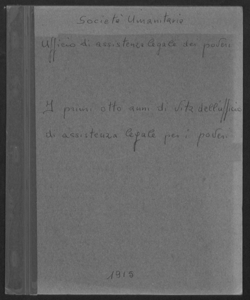 Società Umanitaria
Ufficio di assistenza legale dei poveri
I primi otto anni di vita dell'ufficio
di assistenza legale per i poveri
1918